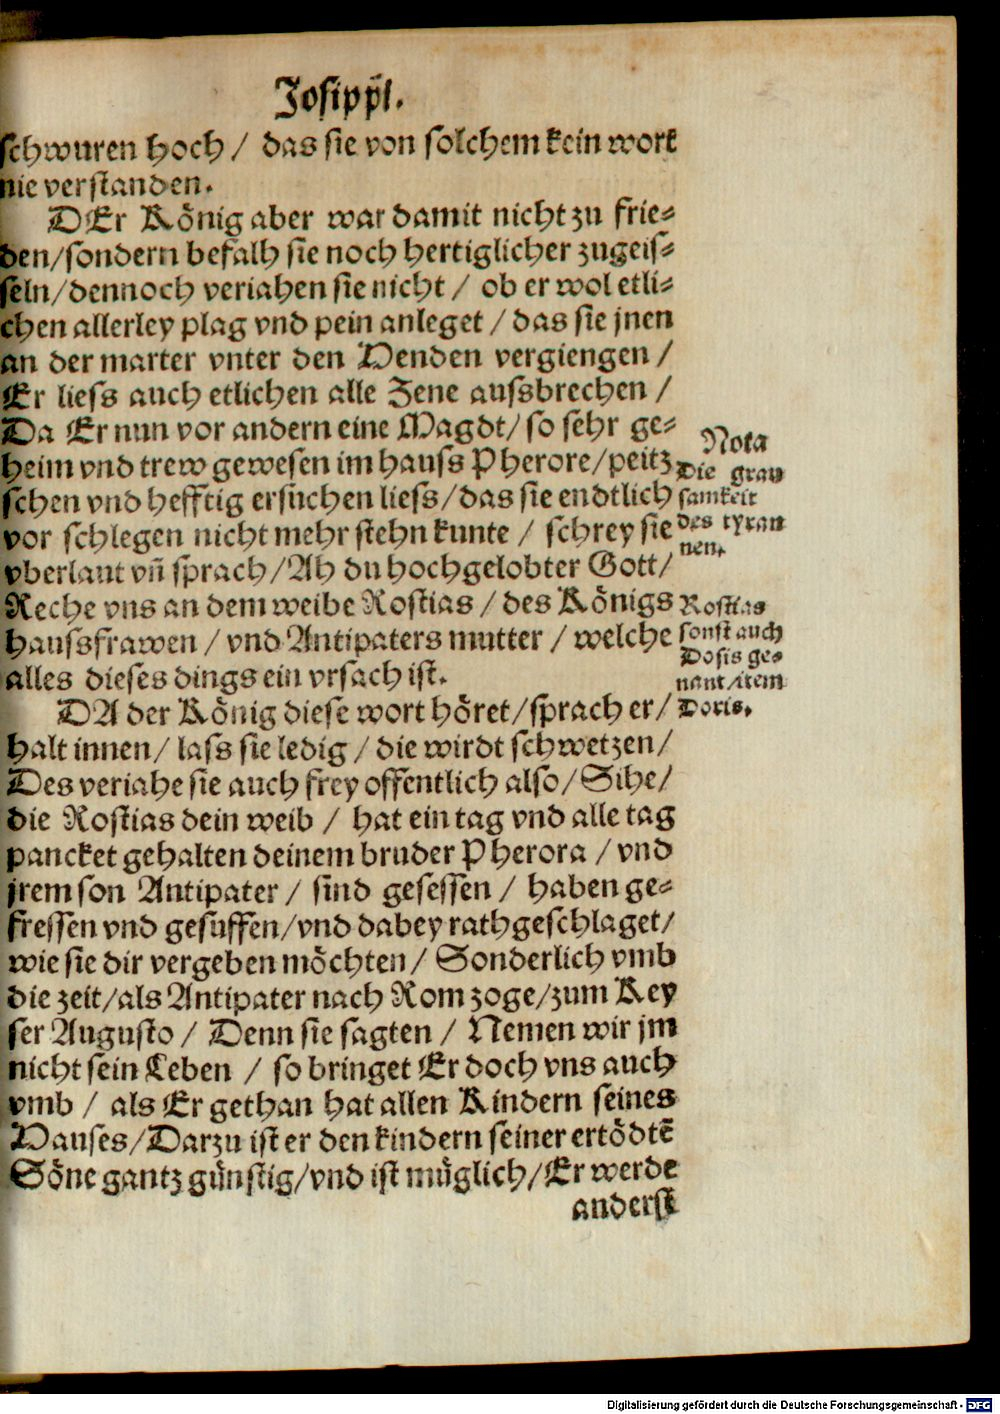 Josippi.
schwuren hoch / das sie von solchem kein wort
nie verstanden.
DEr König aber war damit nicht zu frie⸗
den/sondern befalh sie noch hertiglicher zugeis⸗
seln/dennoch veriahen sie nicht / ob er wol etli⸗
chen allerley plag vnd pein anleget / das sie jnen
an der marter vnter den Henden vergiengen /
Er liess auch etlichen alle Zene aussbrechen /
Da Er nun vor andern eine Magdt/ so sehr ge⸗
heim vnd trew gewesen im hauss Pherore/peitz
schen vnd hefftig ersuchen liess/das sie endtlich
vor schlegen nicht mehr stehn kunte / schrey sie
vberlaut vñ sprach/Ah du hochgelobter Gott/
Reche vns an dem weibe Rostias / des Königs
haussfrawen / vnd Antipaters mutter / welche
alles dieses dings ein vrsach ist.
DA der König diese wort höret/sprach er/
halt innen/ lass sie ledig / die wirdt schwetzen/
Des veriahe sie auch frey offentlich also/Sihe/
die Rostias dein weib / hat ein tag vnd alle tag
pancket gehalten deinem bruder Pherora / vnd
jrem son Antipater / sind gesessen / haben ge⸗
fressen vnd gesuffen/vnd dabey rathgeschlaget/
wie sie dir vergeben möchten/ Sonderlich vmb
die zeit/als Antipater nach Rom zoge/zum Key
ser Augusto / Denn sie sagten / Nemen wir jm
nicht sein Leben / so bringet Er doch vns auch
vmb / als Er gethan hat allen Kindern seines
Hauses/Darzu ist er den kindern seiner ertödtē
Söne gantz günstig/vnd ist müglich/Er werde
anderst
Nota
Die grau
samkeit
des tyran
nen.
Rostias
sonst auch
Dosis ge⸗
nant/item
Doris.
Digitalisierung gefördert durch die Deutsche Forschungsgemeinschaft - DFG